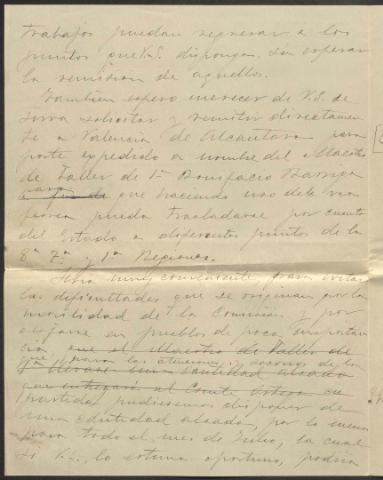 trabajos puedan regresar a los
puntos que V.S. disponga, sin esperar
la remision de aquellos.
Tambien espero merecer de V.S. se
sirva solicitar y remitir directamen
te a Valencia de Alcantara pasa
porte expedido a nombre del Maestro
de Taller de 1ª Bonifacio Barriga
para que haciendo uso de la via
ferrea pueda trasladarse por cuenta
del Estado a diferentes puntos de la
8ª 7ª y 1ª Regiones.
Seria muy conveniente, para evitar
las dificultades que se originan por la
movilidad de la Comision y por
alojarse en pueblos de poca importan
cia que el Maestro de Taller de
que para las atenciones y
1ª llevase una cantidad alzada
que entregará al
partida pudiesemos disponer de
una cantidad alzada, por lo menos
para todo el mes de Julio, la cual
si V.S. lo estima oportuno, podria